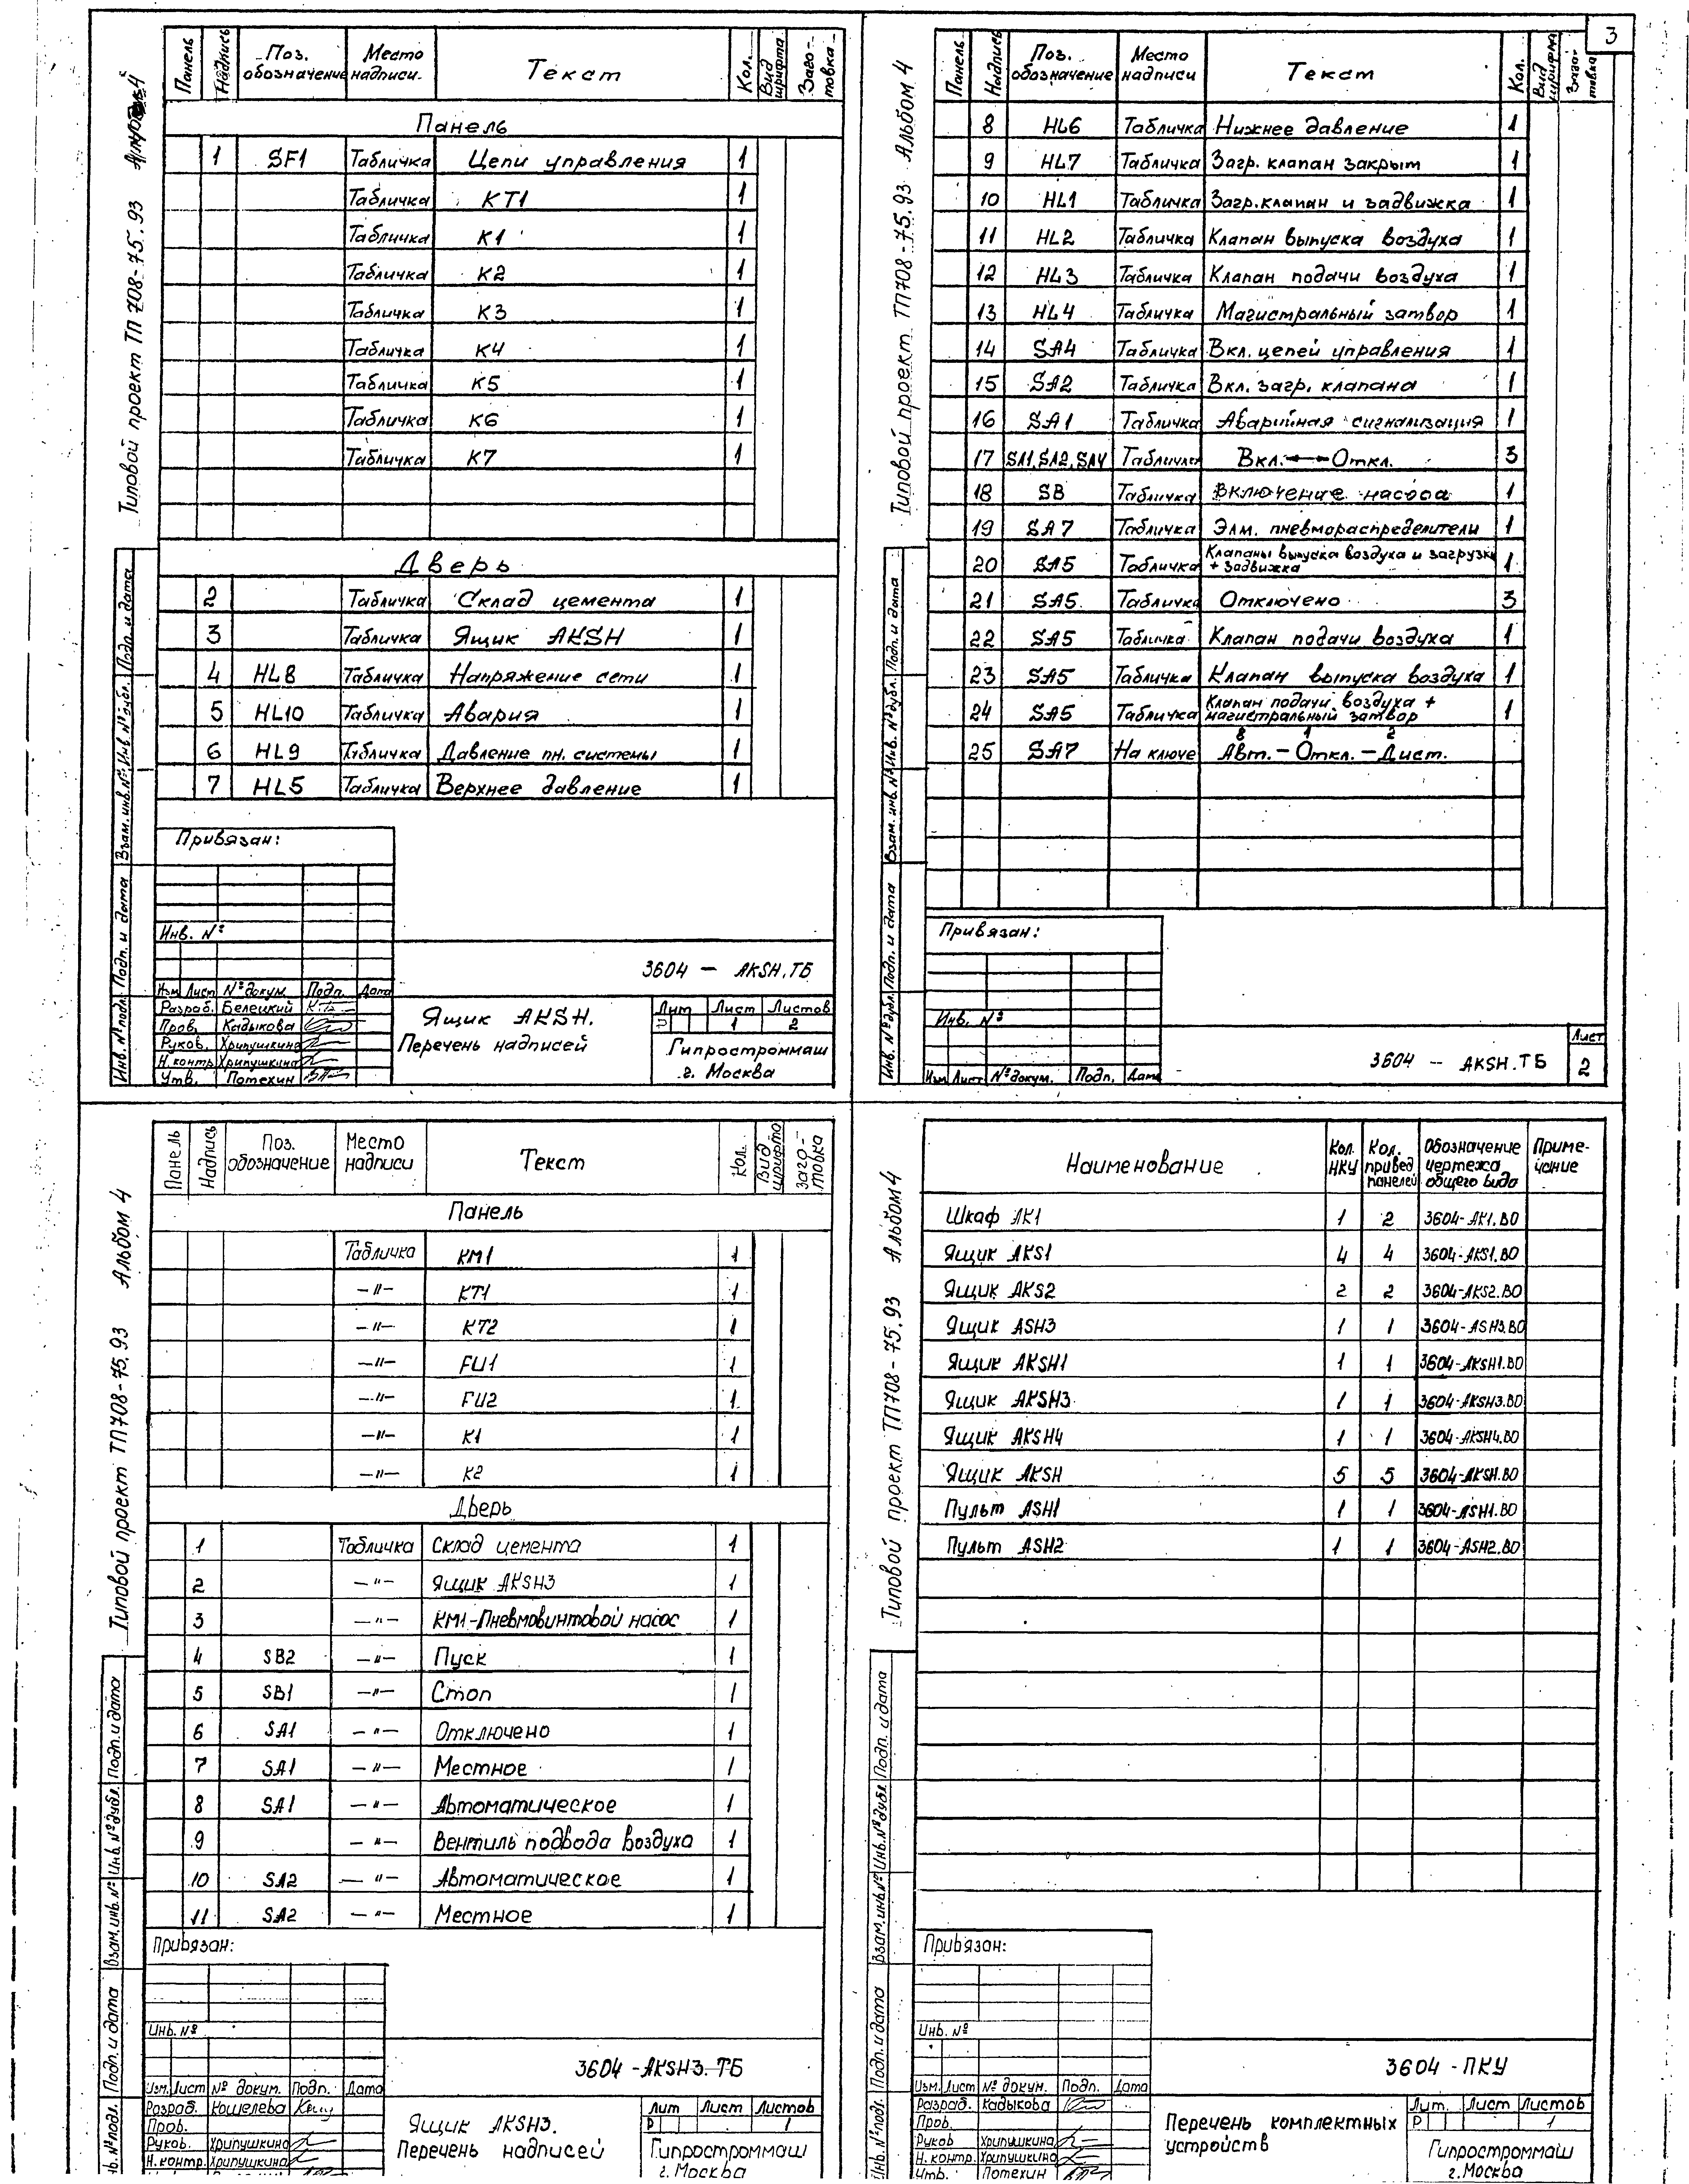 3
Типовой проект ТП 708-75.93
Панель Надпись Поз. обозначение Место надписи Текст Кол. Вид шрифта Заготовка
Панель
1 SF1 Табличка Цепи управления 1
Табличка КТ1 1
Табличка К1 1
Табличка К2 1
Табличка К3 1
Табличка К4 1
Табличка К5 1
Табличка К6 1
Табличка К7 1
Дверь
2 Табличка Склад цемента 1
3 Табличка Ящик AKSH 1
4 HL8 Табличка Напряжение сети 1
5 HL10 Табличка Авария 1
6 HL9 Табличка Давление пн. системы 1
7 HL5 Табличка Верхнее давление 1
Инв. № подл. Подп. и дата Взам. инв. № Инв. № дубл. Подп. и дата
Привязан:
Инв. №
3604 – AKSH.ТБ
Изм Лист № докум. Подп. Дата
Разраб. Белецкий
Пров. Кадыкова
Руков. Хрипушкина
Н. контр Хрипушкина
Утв. Потехин
Ящик AKSH.
Перечень надписей
Лит Лист Листов
1 2
Гипростроммаш
г. Москва
Типовой проект ТП708-75.93 Альбом 4
Панель Надпись Поз. обозначение Место надписи Текст Кол. Вид шрифта Заготовка
8 HL6 Табличка Нижнее давление 1
9 HL7 Табличка Загр. клапан закрыт 1
10 HL1 Табличка Загр. клапан и задвижка 1
11 HL2 Табличка Клапан выпуска воздуха 1
12 HL3 Табличка Клапан подачи воздуха 1
13 HL4 Табличка Магистральный затвор 1
14 SA4 Табличка Вкл. цепей управления 1
15 SA2 Табличка Вкл. загр. клапана 1
16 SA1 Табличка Аварийная сигнализация 1
17 SA1, SA2, SA4 Табличка Вкл. ↔ Откл. 3
18 SB Табличка Включение насоса 1
19 SA7 Табличка Элм. пневмораспределители 1
20 SA5 Табличка Клапаны выпуска воздуха и загрузки + задвижка 1
21 SA5 Табличка Отключено 3
22 SA5 Табличка Клапан подачи воздуха 1
23 SA5 Табличка Клапан выпуска воздуха 1
24 SA5 Табличка Клапан подачи воздуха + магистральный затвор 1
8 1 2
25 SA7 На ключе Авт. – Откл. – Дист.
Инв. № дубл. Подп. и дата Взам. инв. № Инв. № дубл. Подп. и дата
Привязан:
Инв. №
Изм Лист № докум. Подп. Дата
3604 – AKSH.ТБ
Лист
2
Типовой проект ТП708-75.93 Альбом 4
Панель Надпись Поз. обозначение Место надписи Текст Кол. Вид шрифта Заготовка
Панель
Табличка КМ1 1
–"– КТ1 1
–"– КТ2 1
–"– FU1 1
–"– FU2 1
–"– К1 1
–"– К2 1
Дверь
1 Табличка Склад цемента 1
2 –"– Ящик AKSH3 1
3 –"– КМ1-Пневмовинтовой насос 1
4 SB2 –"– Пуск 1
5 SB1 –"– Стоп 1
6 SA1 –"– Отключено 1
7 SA1 –"– Местное 1
8 SA1 –"– Автоматическое 1
9 –"– Вентиль подвода воздуха 1
10 SA2 –"– Автоматическое 1
11 SA2 –"– Местное 1
Инв. № подл. Подп. и дата Взам. инв. № Инв. № дубл. Подп. и дата
Привязан:
Инв. №
3604 - AKSH3.ТБ
Изм. Лист № докум. Подп. Дата
Разраб. Кошелева
Пров.
Руков. Хрипушкина
Н. контр. Хрипушкина
Ящик AKSH3.
Перечень надписей
Лит Лист Листов
Р 1
Гипростроммаш
г. Москва
Типовой проект ТП708-75.93 Альбом 4
Наименование Кол. НКУ Кол. привед. панелей Обозначение чертежа общего вида Примечание
Шкаф AK1 1 2 3604-AK1.ВО
Ящик AKS1 4 4 3604-AKS1.ВО
Ящик AKS2 2 2 3604-AKS2.ВО
Ящик ASH3 1 1 3604-ASH3.ВО
Ящик AKSH1 1 1 3604-AKSH1.ВО
Ящик AKSH3 1 1 3604-AKSH3.ВО
Ящик AKSH4 1 1 3604-AKSH4.ВО
Ящик AKSH 5 5 3604-AKSH.ВО
Пульт ASH1 1 1 3604-ASH1.ВО
Пульт ASH2 1 1 3604-ASH2.ВО
Инв. № подл. Подп. и дата Взам. инв. № Инв. № дубл. Подп. и дата
Привязан:
Инв. №
3604 - ПКУ
Изм. Лист № докум. Подп. Дата
Разраб. Кадыкова
Пров.
Руков Хрипушкина
Н. контр. Хрипушкина
Утв. Потехин
Перечень комплектных
устройств
Лит. Лист Листов
Р 1
Гипростроммаш
г. Москва